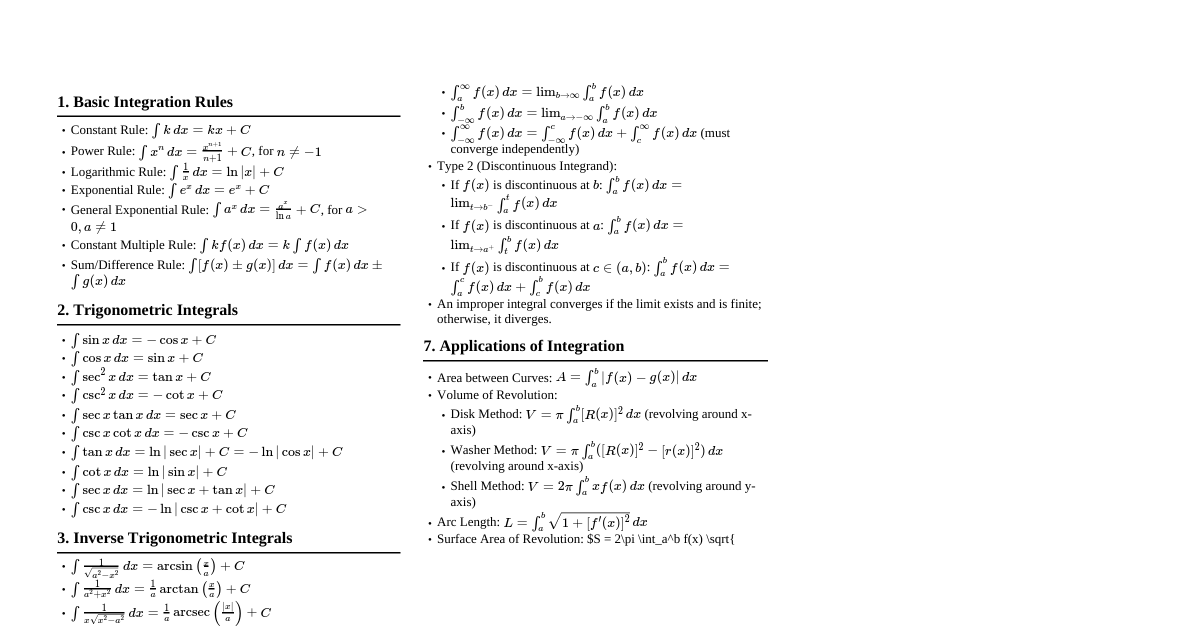 1. Basic Integration Rules
• Constant Rule: ∫ k dx = kx + C
• Power Rule: ∫ xⁿ dx = xⁿ⁺¹/(n+1) + C, for n ≠ −1
• Logarithmic Rule: ∫ 1/x dx = ln |x| + C
• Exponential Rule: ∫ eˣ dx = eˣ + C
• General Exponential Rule: ∫ aˣ dx = aˣ/ln a + C, for a >
0, a ≠ 1
• Constant Multiple Rule: ∫ kf(x) dx = k ∫ f(x) dx
• Sum/Difference Rule: ∫[f(x) ± g(x)] dx = ∫ f(x) dx ±
∫ g(x) dx
2. Trigonometric Integrals
• ∫ sin x dx = − cos x + C
• ∫ cos x dx = sin x + C
• ∫ sec² x dx = tan x + C
• ∫ csc² x dx = − cot x + C
• ∫ sec x tan x dx = sec x + C
• ∫ csc x cot x dx = − csc x + C
• ∫ tan x dx = ln | sec x| + C = − ln | cos x| + C
• ∫ cot x dx = ln | sin x| + C
• ∫ sec x dx = ln | sec x + tan x| + C
• ∫ csc x dx = − ln | csc x + cot x| + C
3. Inverse Trigonometric Integrals
• ∫ 1/√(a²−x²) dx = arcsin (x/a) + C
• ∫ 1/(a²+x²) dx = 1/a arctan (x/a) + C
• ∫ 1/(x√(x²−a²)) dx = 1/a arcsec (|x|/a) + C
• ∫ₐ^∞ f(x) dx = lim_{b→∞} ∫ₐᵇ f(x) dx
• ∫_{−∞}^b f(x) dx = lim_{a→−∞} ∫ₐᵇ f(x) dx
• ∫_{−∞}^∞ f(x) dx = ∫_{−∞}^c f(x) dx + ∫_c^∞ f(x) dx (must
converge independently)
• Type 2 (Discontinuous Integrand):
• If f(x) is discontinuous at b: ∫ₐᵇ f(x) dx =
lim_{t→b⁻} ∫ₐᵗ f(x) dx
• If f(x) is discontinuous at a: ∫ₐᵇ f(x) dx =
lim_{t→a⁺} ∫ₜᵇ f(x) dx
• If f(x) is discontinuous at c ∈ (a, b): ∫ₐᵇ f(x) dx =
∫ₐᶜ f(x) dx + ∫_c^b f(x) dx
• An improper integral converges if the limit exists and is finite;
otherwise, it diverges.
7. Applications of Integration
• Area between Curves: A = ∫ₐᵇ |f(x) − g(x)| dx
• Volume of Revolution:
• Disk Method: V = π ∫ₐᵇ[R(x)]² dx (revolving around x-
axis)
• Washer Method: V = π ∫ₐᵇ([R(x)]² − [r(x)]²) dx
(revolving around x-axis)
• Shell Method: V = 2π ∫ₐᵇ xf(x) dx (revolving around y-
axis)
• Arc Length: L = ∫ₐᵇ √(1 + [f′(x)]²) dx
• Surface Area of Revolution: $S = 2\pi \int_a^b f(x) \sqrt{